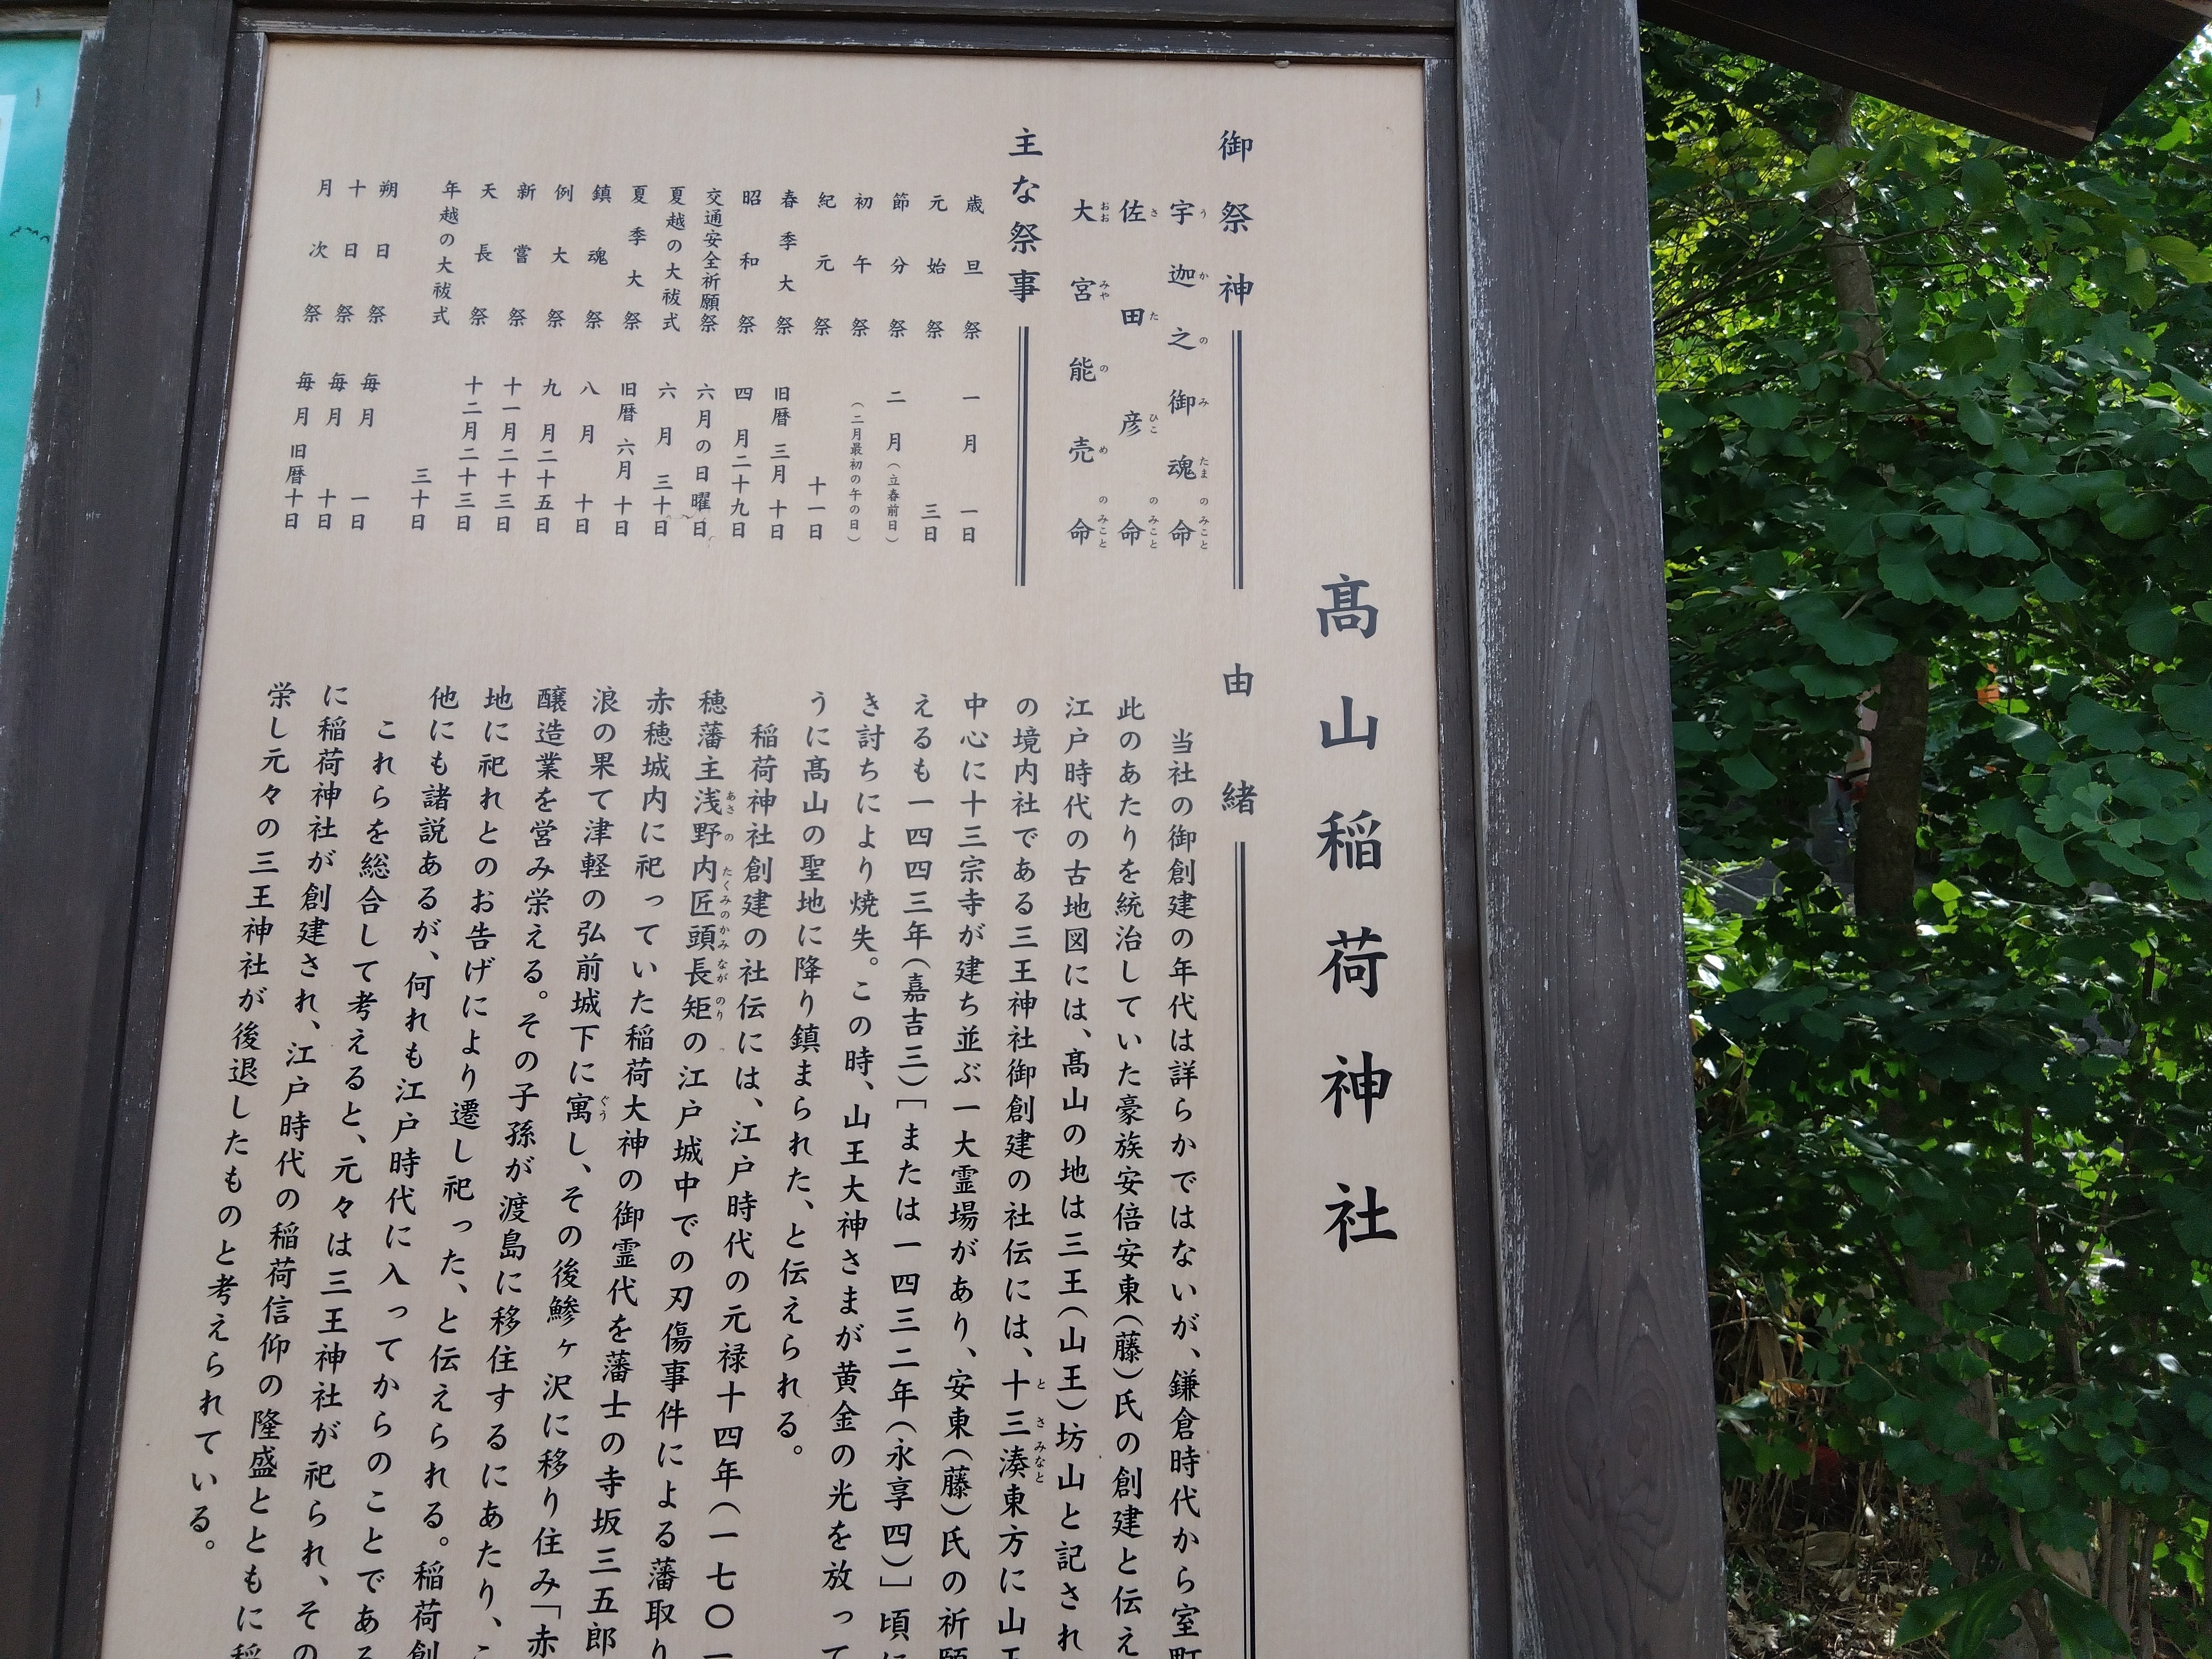 髙山稲荷神社
御祭神
宇迦之御魂命
うかのみたまのみこと
佐田彦命
さたひこのみこと
大宮能売命
おおみやのめのみこと
主な祭事
歳旦祭 一月一日
元始祭 三日
節分祭 二月(立春前日)
初午祭 (二月最初の午の日)
紀元祭 十一日
春季大祭 旧暦三月十日
昭和祭 四月二十九日
交通安全祈願祭 六月の日曜日
夏越の大祓式 六月三十日
夏季大祭 旧暦六月十日
鎮魂祭 八月十日
例大祭 九月二十五日
新嘗祭 十一月二十三日
天長祭 十二月二十三日
年越の大祓式 三十日
朔日祭 毎月一日
十日祭 毎月十日
月次祭 毎月旧暦十日
由緒
当社の御創建の年代は詳らかではないが、鎌倉時代から室町
此のあたりを統治していた豪族安倍安東(藤)氏の創建と伝え
江戸時代の古地図には、髙山の地は三王(山王)坊山と記され
の境内社である三王神社御創建の社伝には、十三湊東方に山王
とさみなと
中心に十三宗寺が建ち並ぶ一大霊場があり、安東(藤)氏の祈願
えるも一四四三年(嘉吉三)[または一四三二年(永享四)]頃に
き討ちにより焼失。この時、山王大神さまが黄金の光を放って
うに髙山の聖地に降り鎮まられた、と伝えられる。
稲荷神社創建の社伝には、江戸時代の元禄十四年(一七〇一
穂藩主浅野内匠頭長矩の江戸城中での刃傷事件による藩取り
あさのたくみのかみながのり
赤穂城内に祀っていた稲荷大神の御霊代を藩士の寺坂三五郎
浪の果て津軽の弘前城下に寓し、その後鰺ヶ沢に移り住み「赤
ぐう
醸造業を営み栄える。その子孫が渡島に移住するにあたり、こ
地に祀れとのお告げにより遷し祀った、と伝えられる。稲荷創
他にも諸説あるが、何れも江戸時代に入ってからのことである
これらを総合して考えると、元々は三王神社が祀られ、その
に稲荷神社が創建され、江戸時代の稲荷信仰の隆盛とともに稲
栄し元々の三王神社が後退したものと考えられている。